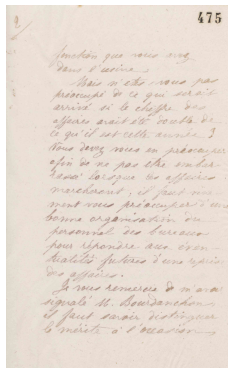 475
fonction que vous avez
dans l'usine.
Mais n'êtes-vous pas
préoccupé de ce qui serait
arrivé si le chiffre des
affaires avait été double de
ce qu'il est cette année ?
Vous devez vous en préoccuper
afin de ne pas être embar
rassé lorsque les affaires
marcheront, il faut
vous préoccuper d'une
bonne organisation du
personnel des bureaux
pour répondre aux éven
tualités futures d'une reprise
des affaires.
Je vous remercie de m'avoir
signalé M. Bourdanchon
il faut savoir distinguer
le mérite à l'occasion